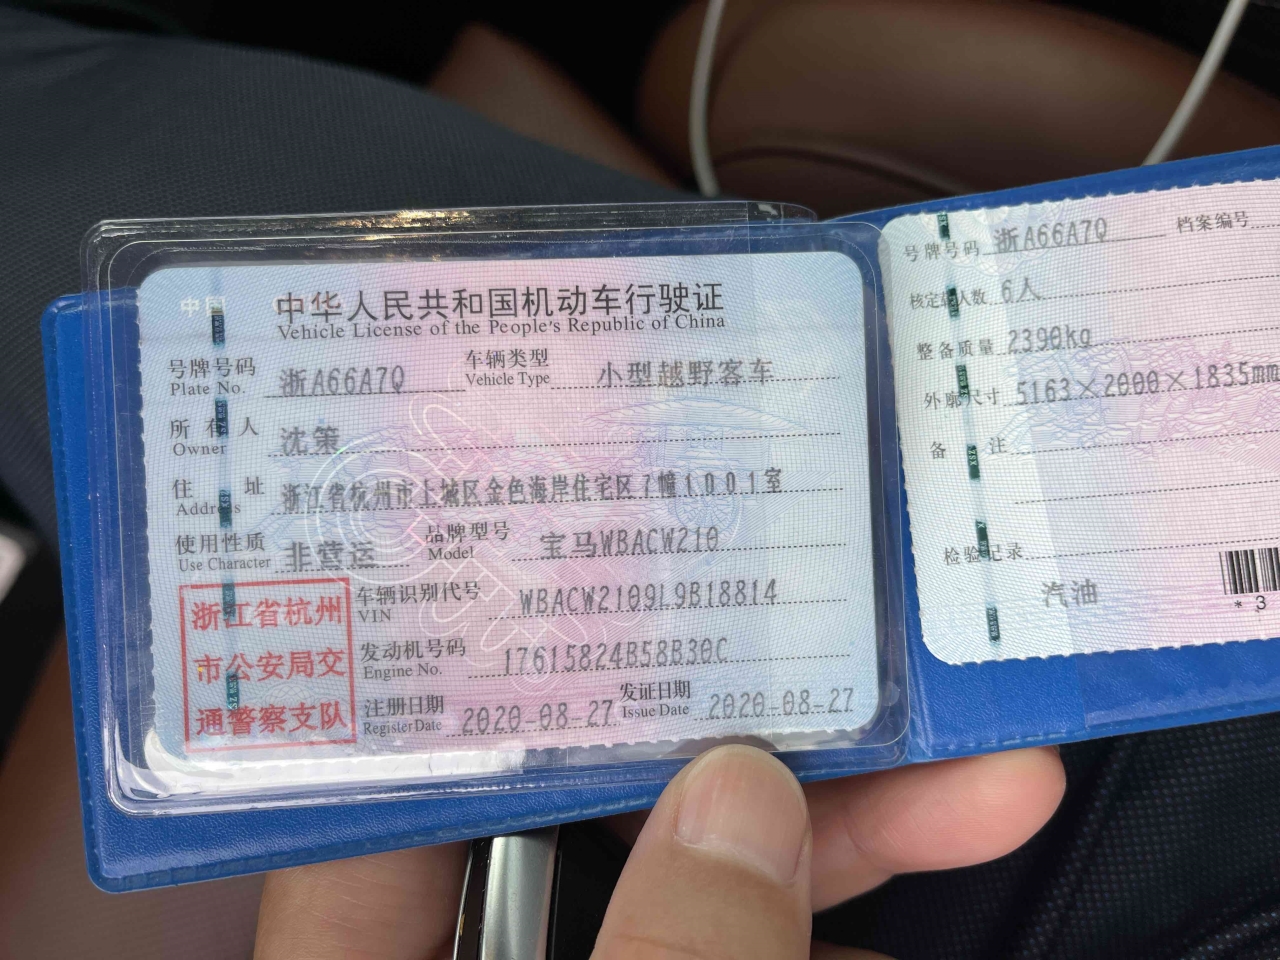 中华人民共和国机动车行驶证
Vehicle License of the People's Republic of China
号牌号码 浙A66A7Q 车辆类型 小型越野客车
Plate No. Vehicle Type
所有人 沈策
Owner
住址 浙江省杭州市上城区金色海岸住宅区7幢1001室
Address
使用性质 非营运 品牌型号 宝马WBACW210
Use Character Model
车辆识别代号 WBACW2109L9B18814
VIN
发动机号码 17615824B58B30C
Engine No.
注册日期 2020-08-27 发证日期 2020-08-27
Register Date Issue Date
浙江省杭州
市公安局交
通警察支队
号牌号码 浙A66A7Q 档案编号
核定总人数 6人
整备质量 2390kg
外廓尺寸 5163×2000×1835mm
备注
检验记录
汽油
*3